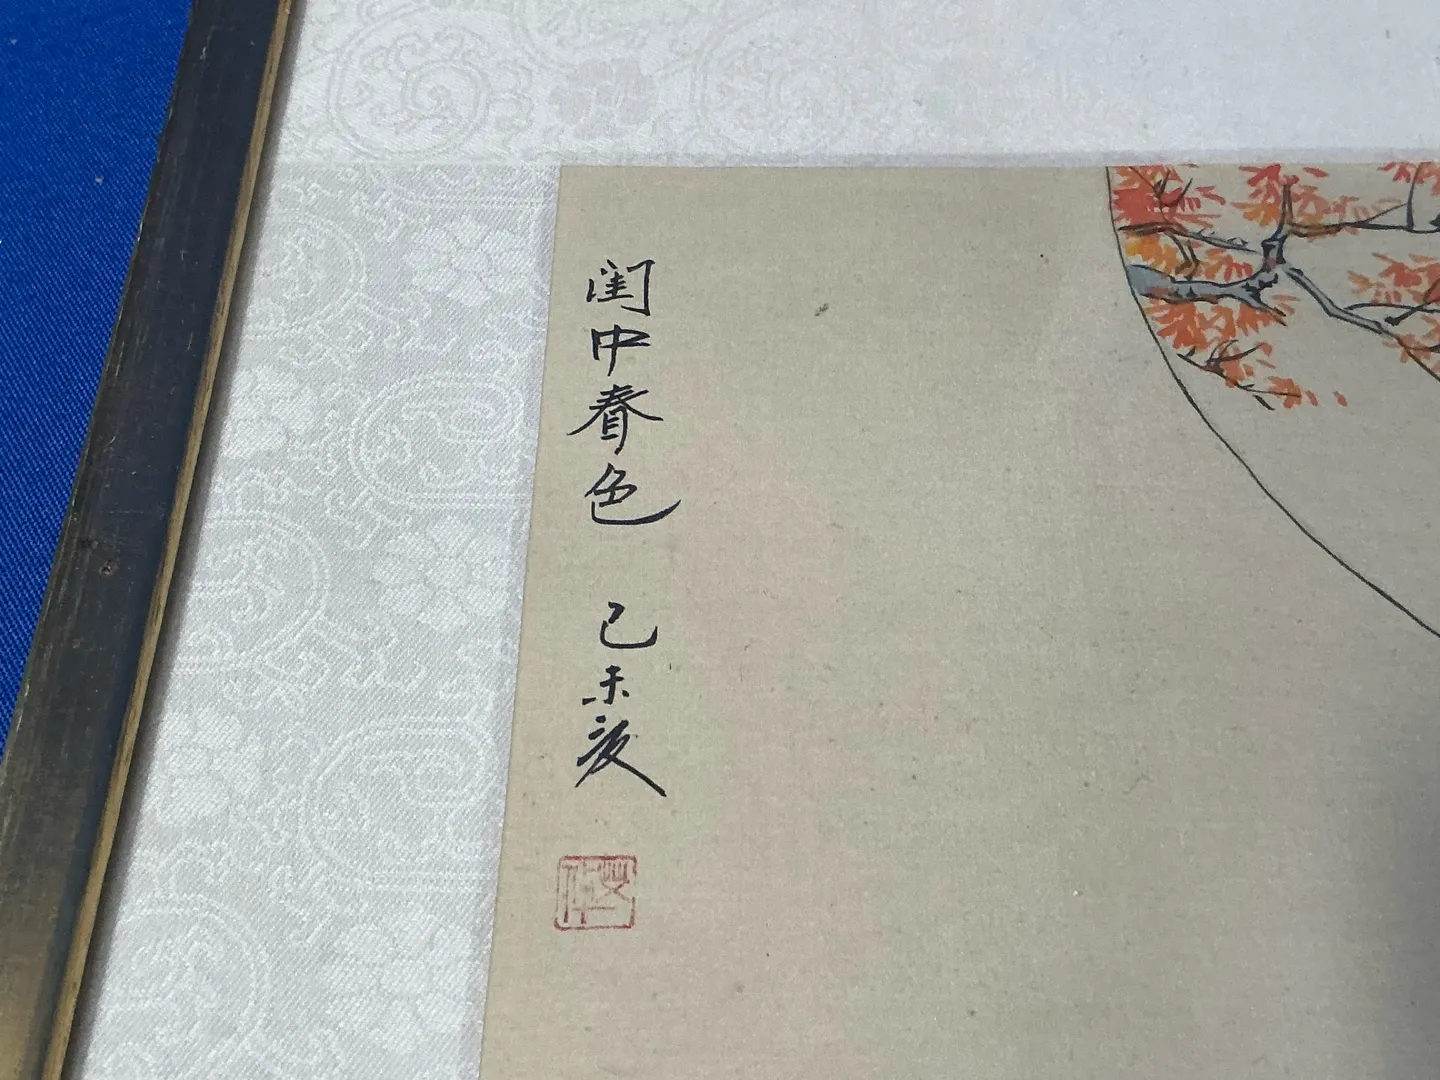 闺中春色 己未夜